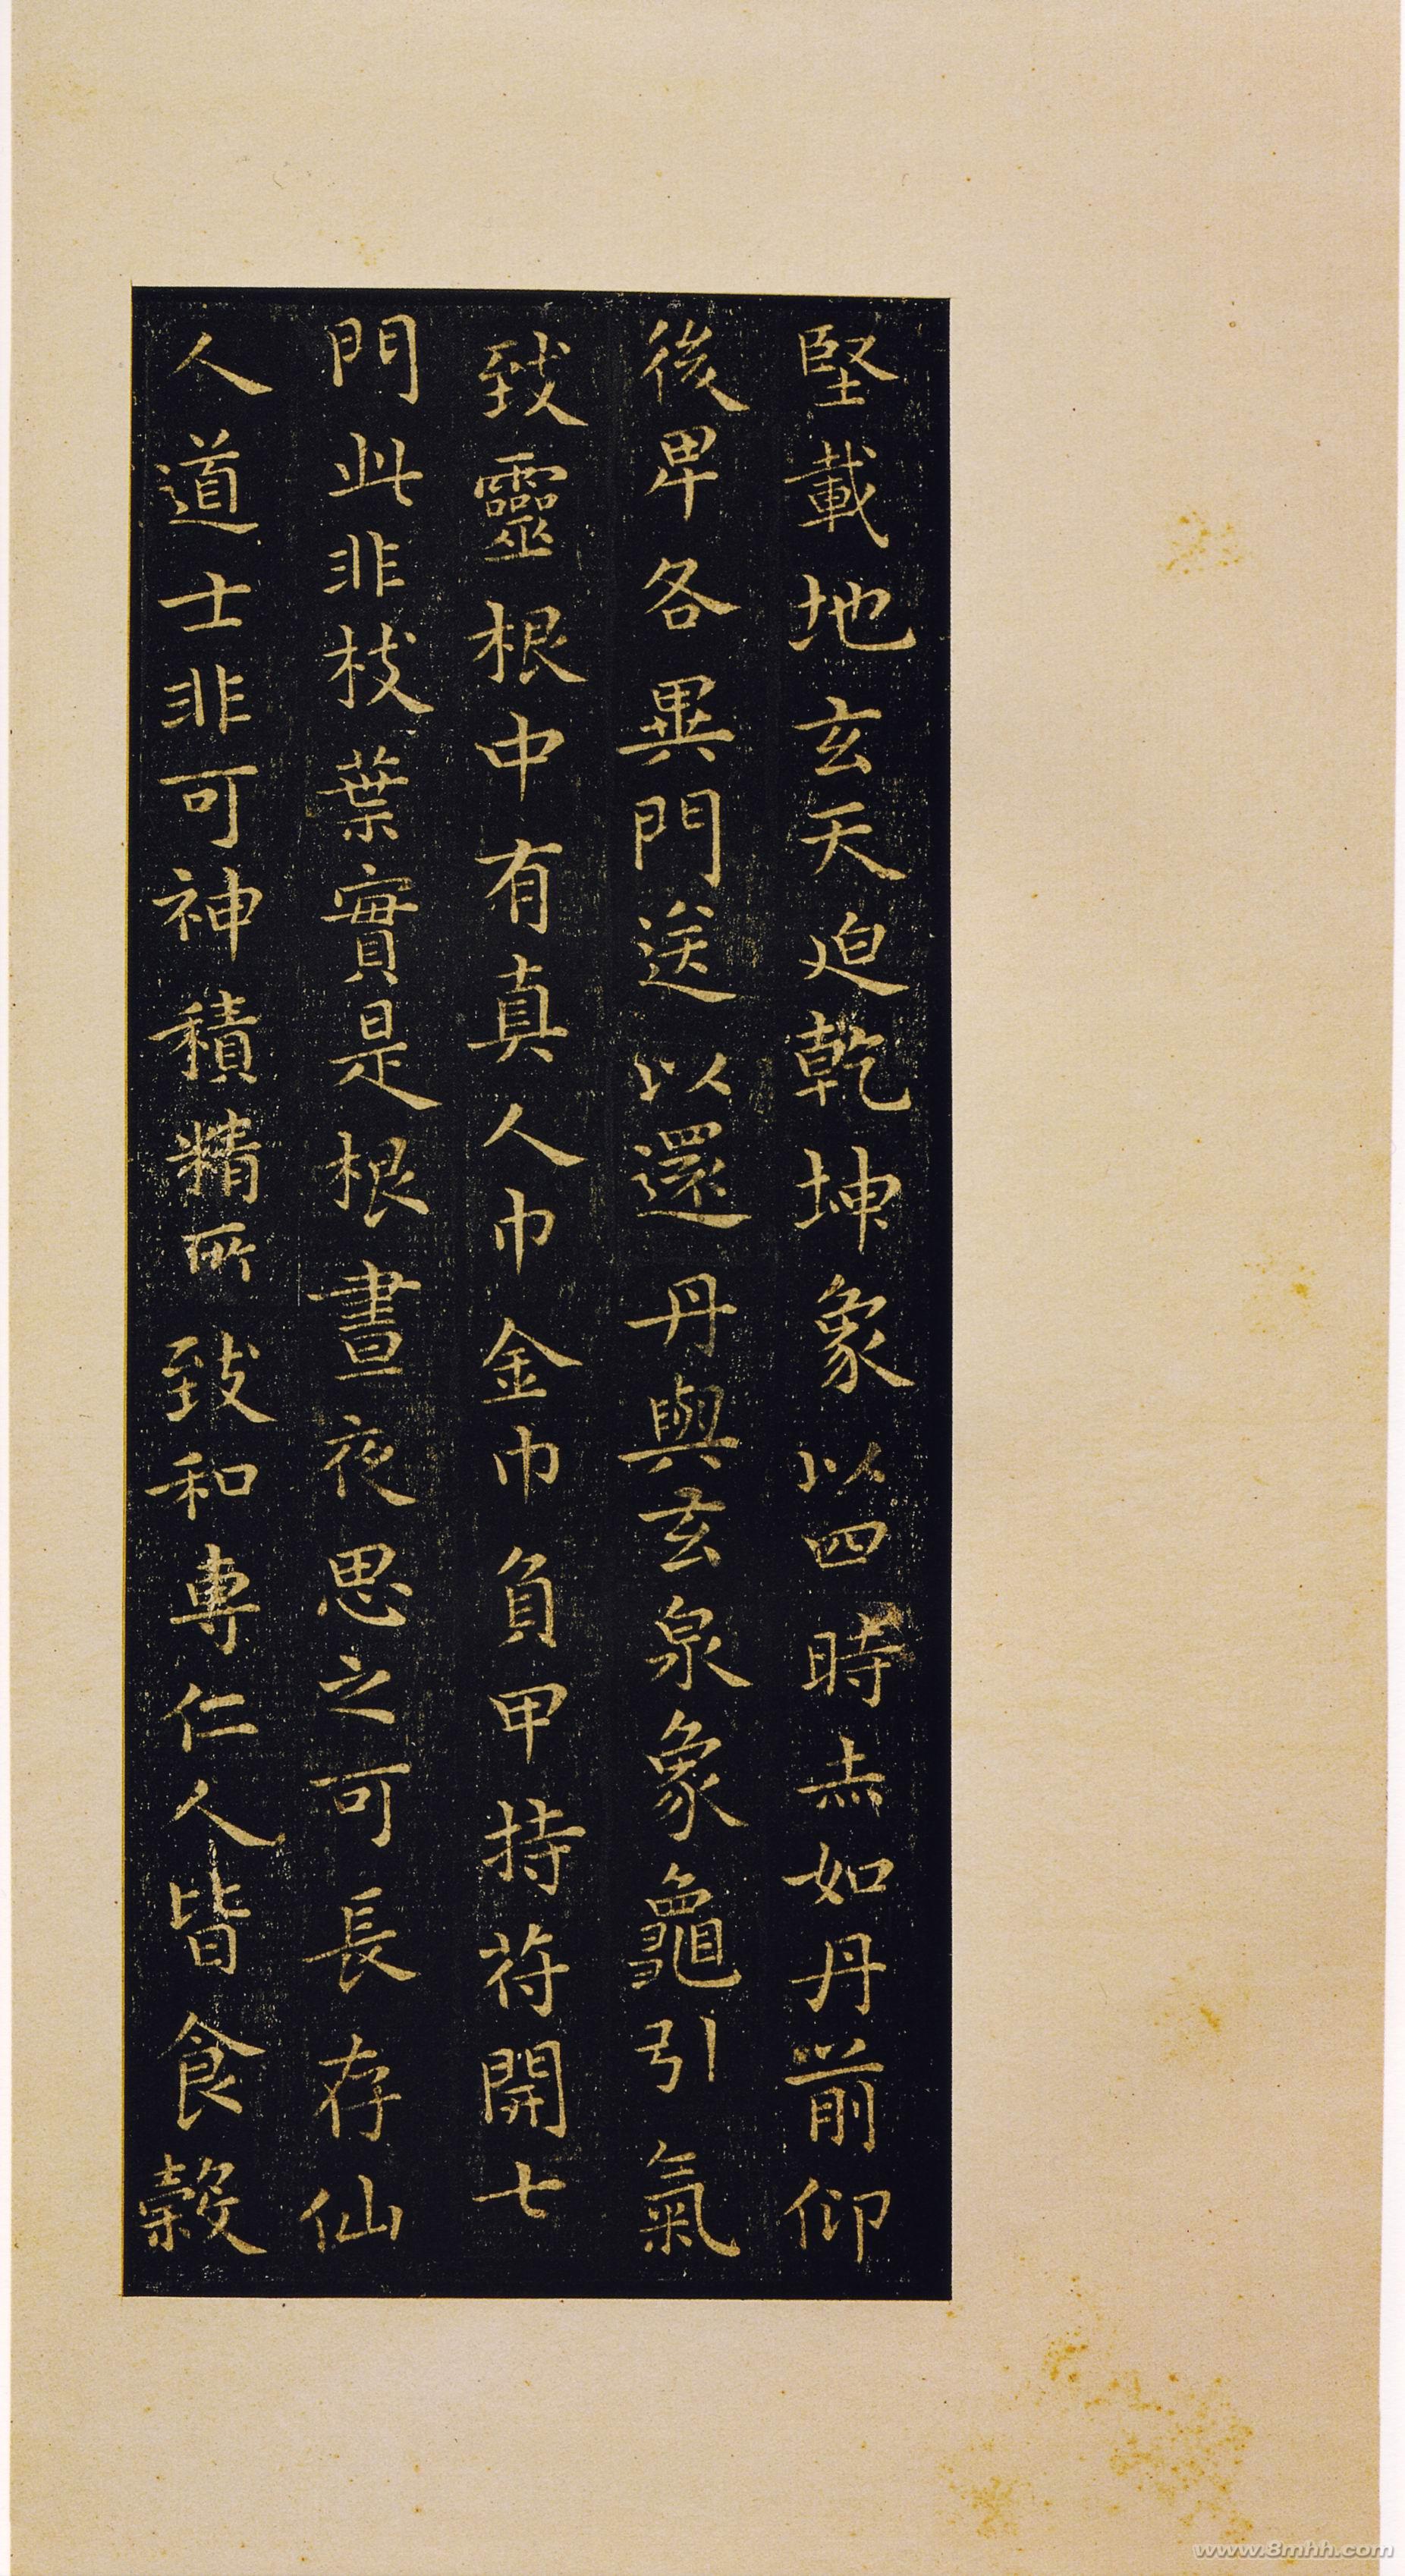 堅載地玄天迫乾坤象以四時赤如丹前仰
後卑各異門送以還丹與玄泉象龜引氣
致靈根中有真人巾金巾負甲持苻開七
門此非枝葉實是根晝夜思之可長存仙
人道士非可神積精所致和專仁人皆食穀
www.8mhh.com